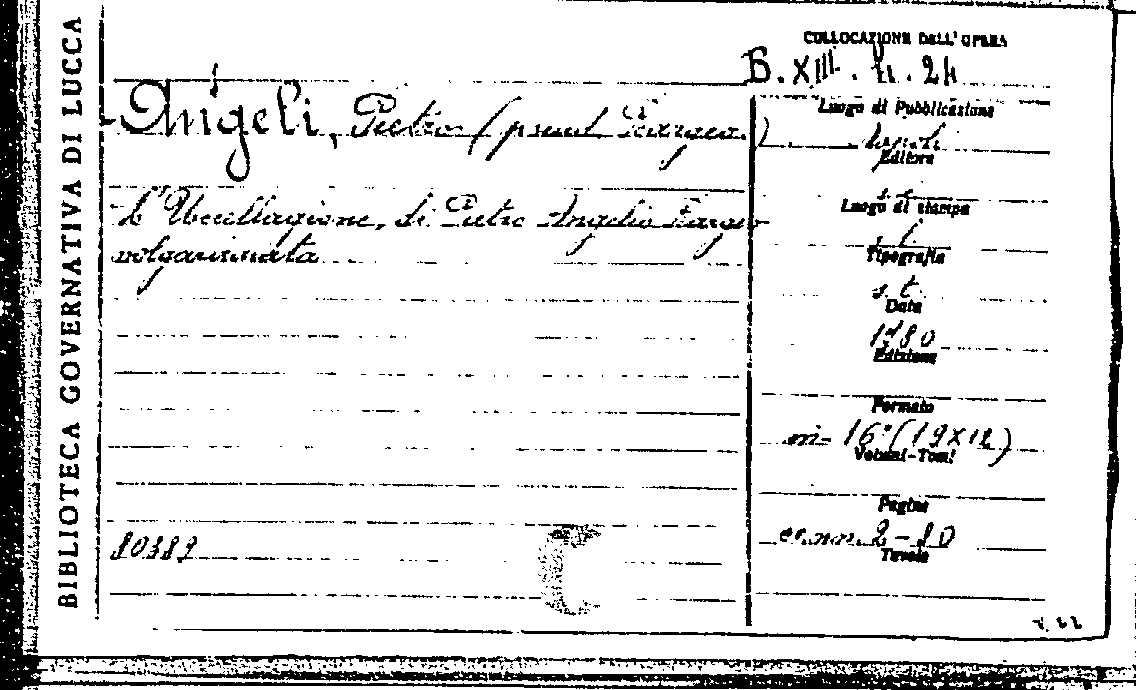 BIBLIOTECA GOVERNATIVA DI LUCCA
COLLOCAZIONE DELL' OPERA
B. XIII. h. 24
Angeli, Pietro (pseud. Bargeo)
Luogo di Pubblicazione
Napoli
Editore
L'Uccellagione, di Pietro Angelio Bargeo
volgarizzata
Luogo di stampa
s. l.
Tipografia
s. t.
Data
1780
Edizione
Formato
in-16° (19X12)
Volumi-Tomi
Pagine
cc. nn. 2-80
Tavole
80389